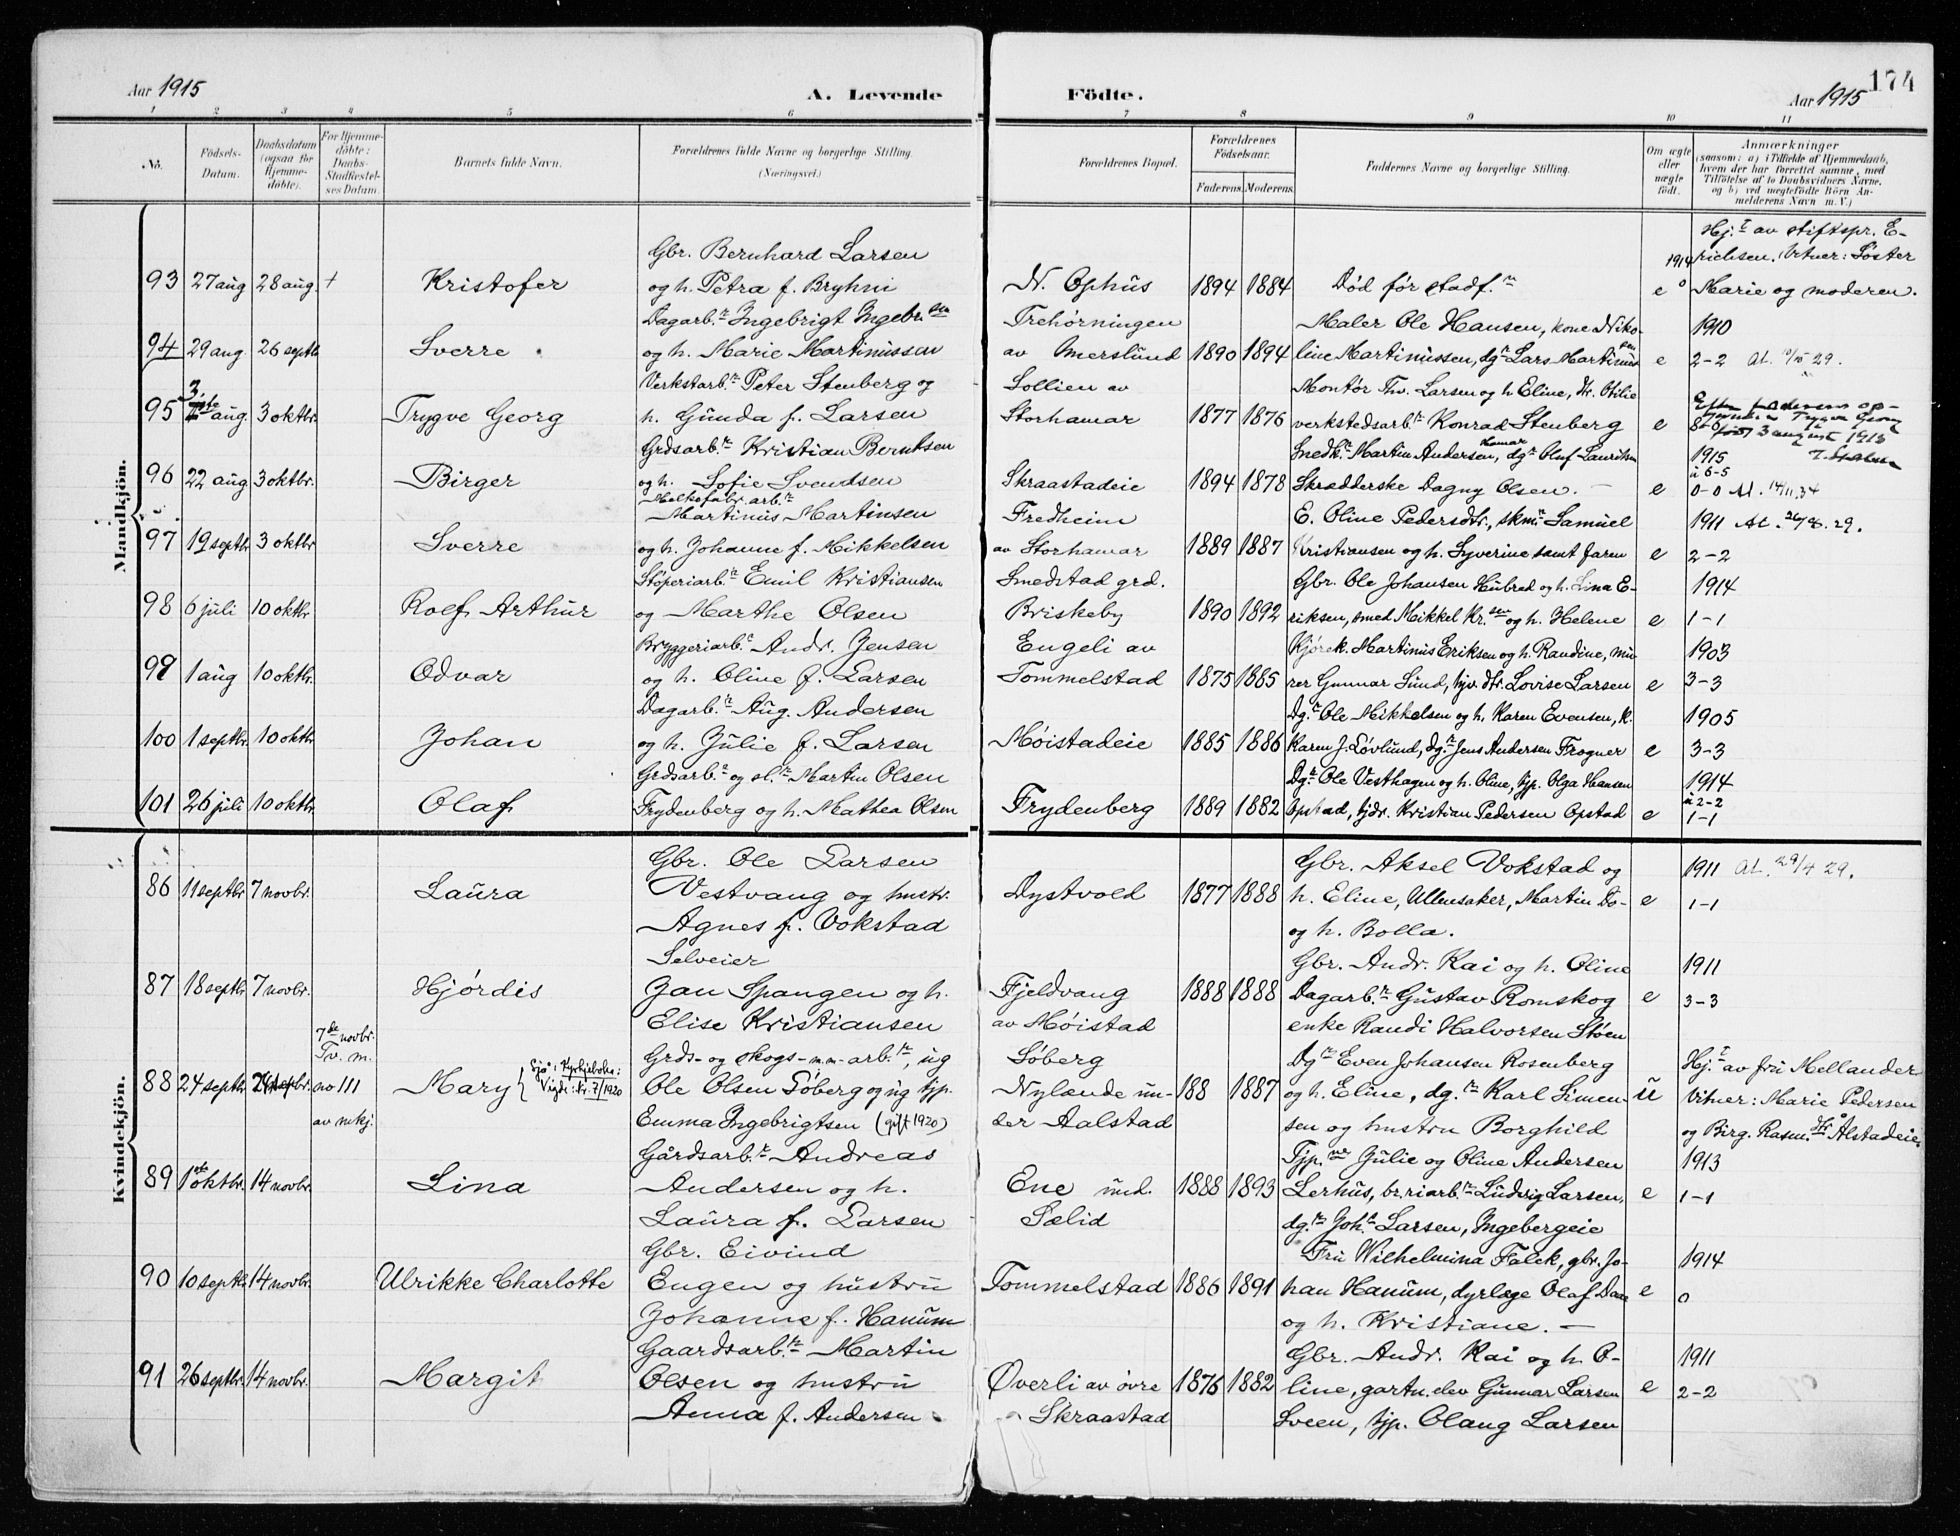 Aar 1915
A. Levende
Födte.
Aar 1915
174
1 2 3 4 5 6 7 8 9 10 11
No.
Födsels-
Datum.
Daabsdatum
(ogsaa for
Hjemme-
döbte).
For Hjemme-
döbte:
Daabs-
Stadfæstel-
ses Datum.
Barnets fulde Navn.
Forældrenes fulde Navne og borgerlige Stilling.
(Næringsvei.)
Forældrenes Bopæl.
Forældrenes
Födselsaar.
Faderens. Moderens.
Faddernes Navne og borgerlige Stilling.
Om ægte
eller
uægte
født.
Anmærkninger
(saasom: a) i Tilfælde af Hjemmedaab,
hvem der har forrettet samme, med
Tilföielse af to Daabsvidners Navne,
og b) ved uægtefödte Börn An-
melderens Navn m. V.)
Mandkjön.
93 27 aug 28 aug. + Kristofer
Gbr. Bernhard Larsen
og h. Petra f. Bryhni
N. Ophus 1894 1884
Død før stadf.n
e
1914
0
Hj.t av stiftspr. E-
richsen. Vitner: Søster
Marie og moderen.
94 29 aug. 26 septb. Sverre
Dagarb.r Ingebrigt Ingebr.sen
og h. Marie Martinussen
Trehørningen
av Imerslund 1890 1894
Maler Ole Hansen, kone Niko-
line Martinussen, dg.r Lars Martinussen
e
1910
2-2 At. 10/5 29.
95 3 aug. 3 oktbr. Trygve Georg
Verkstarb.r Peter Stenberg og
h. Gunda f. Larsen
Sollien av
Storhamar 1877 1876
Montør Thv. Larsen og h Eline, dtr. Otilie
verkstedsarb.r Konrad Stenberg
e
8-6
født 3 august 1913
96 22 aug 3 oktbr. Birger
Grdsarb.r Kristian Berntsen
og h. Sofie Svendsen
Skraastadeie 1894 1878
Snedk.r Martin Andersen, Hamar dg.r Oluf Lauritsen
Skrædderske Dagny Olsen. —
e
1915
u 6-5
0-0 At. 14/11.34
97 19 septbr 3 oktbr Sverre
Melkefabr.arb.r
Martinus Martinsen
og h. Johanne f. Mikkelsen
Fredheim
av Storhamar 1889 1887
E. Oline Pedersdtr., skm.r Samuel
Kristiansen og h. Syverine samt faren
e
1911 At. 26/8. 29.
2-2
98 6 juli 10 oktbr. Rolf Arthur
Støperiarb.r Emil Kristiansen
og Marthe Olsen
Smedstad grd.
Briskeby 1890 1892
Gbr. Ole Johansen Hubred og h. Lina E-
riksen, smed Mikkel Kr.sen og h. Helene
e
1914
1-1
99 1 aug 10 oktbr. Odvar
Bryggeriarb.r Andr. Jensen
og h. Oline f. Larsen
Engeli av
Tommelstad 1875 1885
Kjørek. Martinus Eriksen og h. Randine, mu-
rer Gunnar Lund, hjv. dtr. Lovise Larsen
e
1903
3-3
100 1 septbr. 10 oktbr Johan
Dagarb.r Aug. Andersen
og h. Julie f. Larsen
Møistadeie 1885 1886
Dg.r Ole Mikkelsen og h. Karen Evensen, K.
Karen J. Løvlund, dg.r Jens Andersen Frogner
e
1905
3-3
101 26 juli 10 oktbr. Olaf
Grdsarb.r og sl.r Martin Olsen
Frydenberg og h. Mathea Olsen
Frydenberg 1889 1882
Dg.r Ole Vesthagen og h. Oline, tjp. Olga Hansen
Opstad, tjdr. Kristian Pedersen Opstad
e
1914
u 2-2
1-1
Kvindekjön.
86 11 septbr. 7 novbr. Laura
Gbr. Ole Larsen
Vestvang og hustr.
Agnes f. Vokstad
Dystvold 1877 1888
Gbr. Aksel Vokstad og
h. Eline, Ullensaker, Martin Do-
og h. Bolla.
e
1911 At. 29/4 29.
1-1
87 18 septbr 7 novbr. Hjørdis
Selveier
Jan Spangen og h.
Elise Kristiansen
Fjeldvang
av Møistad
1888 1888
Gbr. Andr. Kai og h. Oline
Dagarb.r Gustav Romskog
enke Randi Halvorsen Støen
e
1911
3-3
88 24 septbr
7de novbr.
Tv. m.
no 111
av mkj.
Mary { Sjå: Kyrkjeboka:
Vigde: Nr. 7/1920
Grds- og skogs- m.m- arb.r, ug
Ole Olsen Søberg og ug tjp.
Emma Ingebrigtsen (gift 1920)
Søberg
Nylænde un-
der Aalstad
188 1887
Dg.r Even Johansen Rosenberg
og h. Eline, dg.r Karl Simen-
sen og hustru Borghild
u
Hj.t av fru Mellander
Vitner: Marie Pedersen
og Birg. Rasm.dtr Ålstadeie
89 1ste oktbr. 14 novbr. Lina
Gårdsarb.r Andreas
Andersen og h.
Laura f. Larsen
Ene und.
Sælid
1888 1893
Tjp.ne Julie og Oline Andersen
Lerhus, br.riarb.r Ludvig Larsen,
dg.r Joh.s Larsen, Ingebergeie
e
1913
1-1
90 10 septbr 14 novbr. Ulrikke Charlotte
Gbr. Eivind
Engen og hustru
Johanne f. Hanum
Tommelstad 1886 1891
Fru Wilhelmina Falck, gbr. Jo-
han Hanum, dyrlæge Olaf Daae
og h. Kristiane. —
e
1914
0
91 26 septbr. 14 novbr. Margit
Gaardsarb.r Martin
Olsen og hustru
Anna f. Andersen
Øverli av øvre
Skraastad
1876 1882
Gbr. Andr. Kai og h. O-
line, gartn.elev Gunnar Larsen
Sveen, tjp. Olaug Larsen
e
1911
2-2